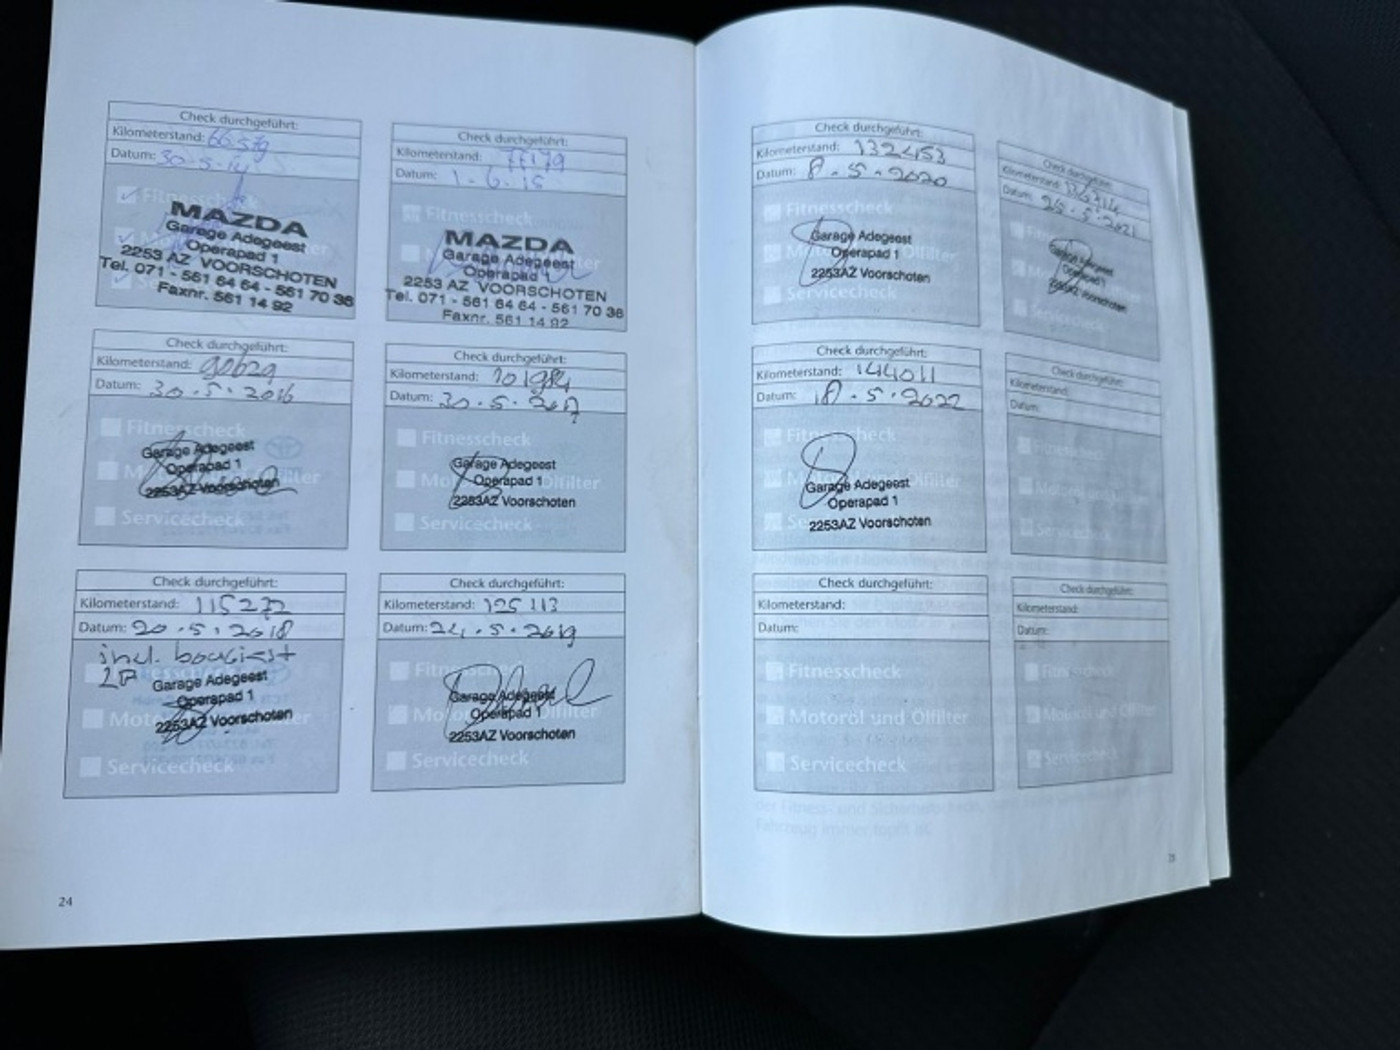 Check durchgeführt:
Kilometerstand: 66579
Datum: 30-5-14
Fitnesscheck
MAZDA
Garage Adegeest
Operapad 1
2253 AZ VOORSCHOTEN
Tel. 071 - 561 64 64 - 561 70 36
Faxnr. 561 14 92
Check durchgeführt:
Kilometerstand: 77179
Datum: 1-6-15
Fitnesscheck
MAZDA
Garage Adegeest
Operapad 1
2253 AZ VOORSCHOTEN
Tel. 071 - 561 64 64 - 561 70 36
Faxnr. 561 14 92
Check durchgeführt:
Kilometerstand: 90629
Datum: 30.5.2016
Fitnesscheck
Garage Adegeest
Operapad 1
2253AZ Voorschoten
Servicecheck
Check durchgeführt:
Kilometerstand: 101984
Datum: 30.5.2017
Fitnesscheck
Garage Adegeest
Operapad 1
2253AZ Voorschoten
Servicecheck
Check durchgeführt:
Kilometerstand: 115272
Datum: 20.5.2018
incl.
Garage Adegeest
Operapad 1
2253AZ Voorschoten
Servicecheck
Check durchgeführt:
Kilometerstand: 125113
Datum: 24.5.2019
Garage Adegeest
Operapad 1
2253AZ Voorschoten
Servicecheck
24
Check durchgeführt:
Kilometerstand: 132453
Datum: 8.5.2020
Fitnesscheck
Garage Adegeest
Operapad 1
2253AZ Voorschoten
Servicecheck
Check durchgeführt:
Kilometerstand:
Datum: 25.5.2021
Garage Adegeest
Operapad 1
2253AZ Voorschoten
Servicecheck
Check durchgeführt:
Kilometerstand: 144011
Datum: 18.5.2022
Fitnesscheck
Garage Adegeest
Operapad 1
2253AZ Voorschoten
Check durchgeführt:
Kilometerstand:
Datum:
Fitnesscheck
Motoröl und Ölfilter
Servicecheck
Check durchgeführt:
Kilometerstand:
Datum:
Fitnesscheck
Motoröl und Ölfilter
Servicecheck
Check durchgeführt:
Kilometerstand:
Datum:
Fitnesscheck
Motoröl und Ölfilter
Servicecheck